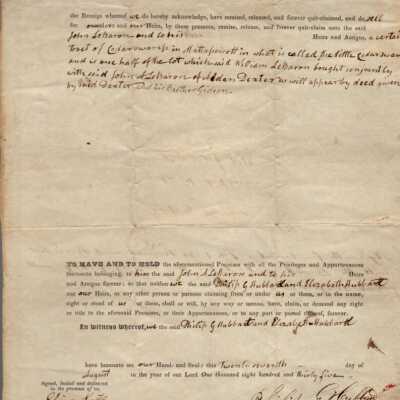 the Receipt whereof we do hereby acknowledge, have remised, released, and forever quit-claimed, and do
for ourselves and our Heirs, by these presents, remise, release, and forever quit-claim unto the said
John LeBaron and to his Heirs and Assigns, a certain
tract of Cedar swamp in Mattapoisett in what is called the little Cedar swamp
and is one half of the lot which said William LeBaron bought conjointly
with said John A LeBaron of Dexter as will appear by deed given
by said Dexter
TO HAVE AND TO HOLD the aforementioned Premises with all the Privileges and Appurtenances
thereunto belonging, to him the said John A LeBaron and to his Heirs
and Assigns forever; so that neither we the said Philip G Hubbard and Elizabeth Hubbard
our Heirs, or any other person or persons claiming from or under us or them, or in the name,
right or stead of us or them, shall or will, by any way or means, have, claim, or demand any right
or title to the aforesaid Premises, or their Appurtenances, or to any part or parcel thereof, forever.
In witness whereof, we the said Philip G Hubbard and Elizabeth Hubbard
have hereunto set our Hand and Seal this Twenty seventh day of
August in the year of our Lord One thousand eight hundred and thirty five
Signed, Sealed and delivered
in the presence of us,